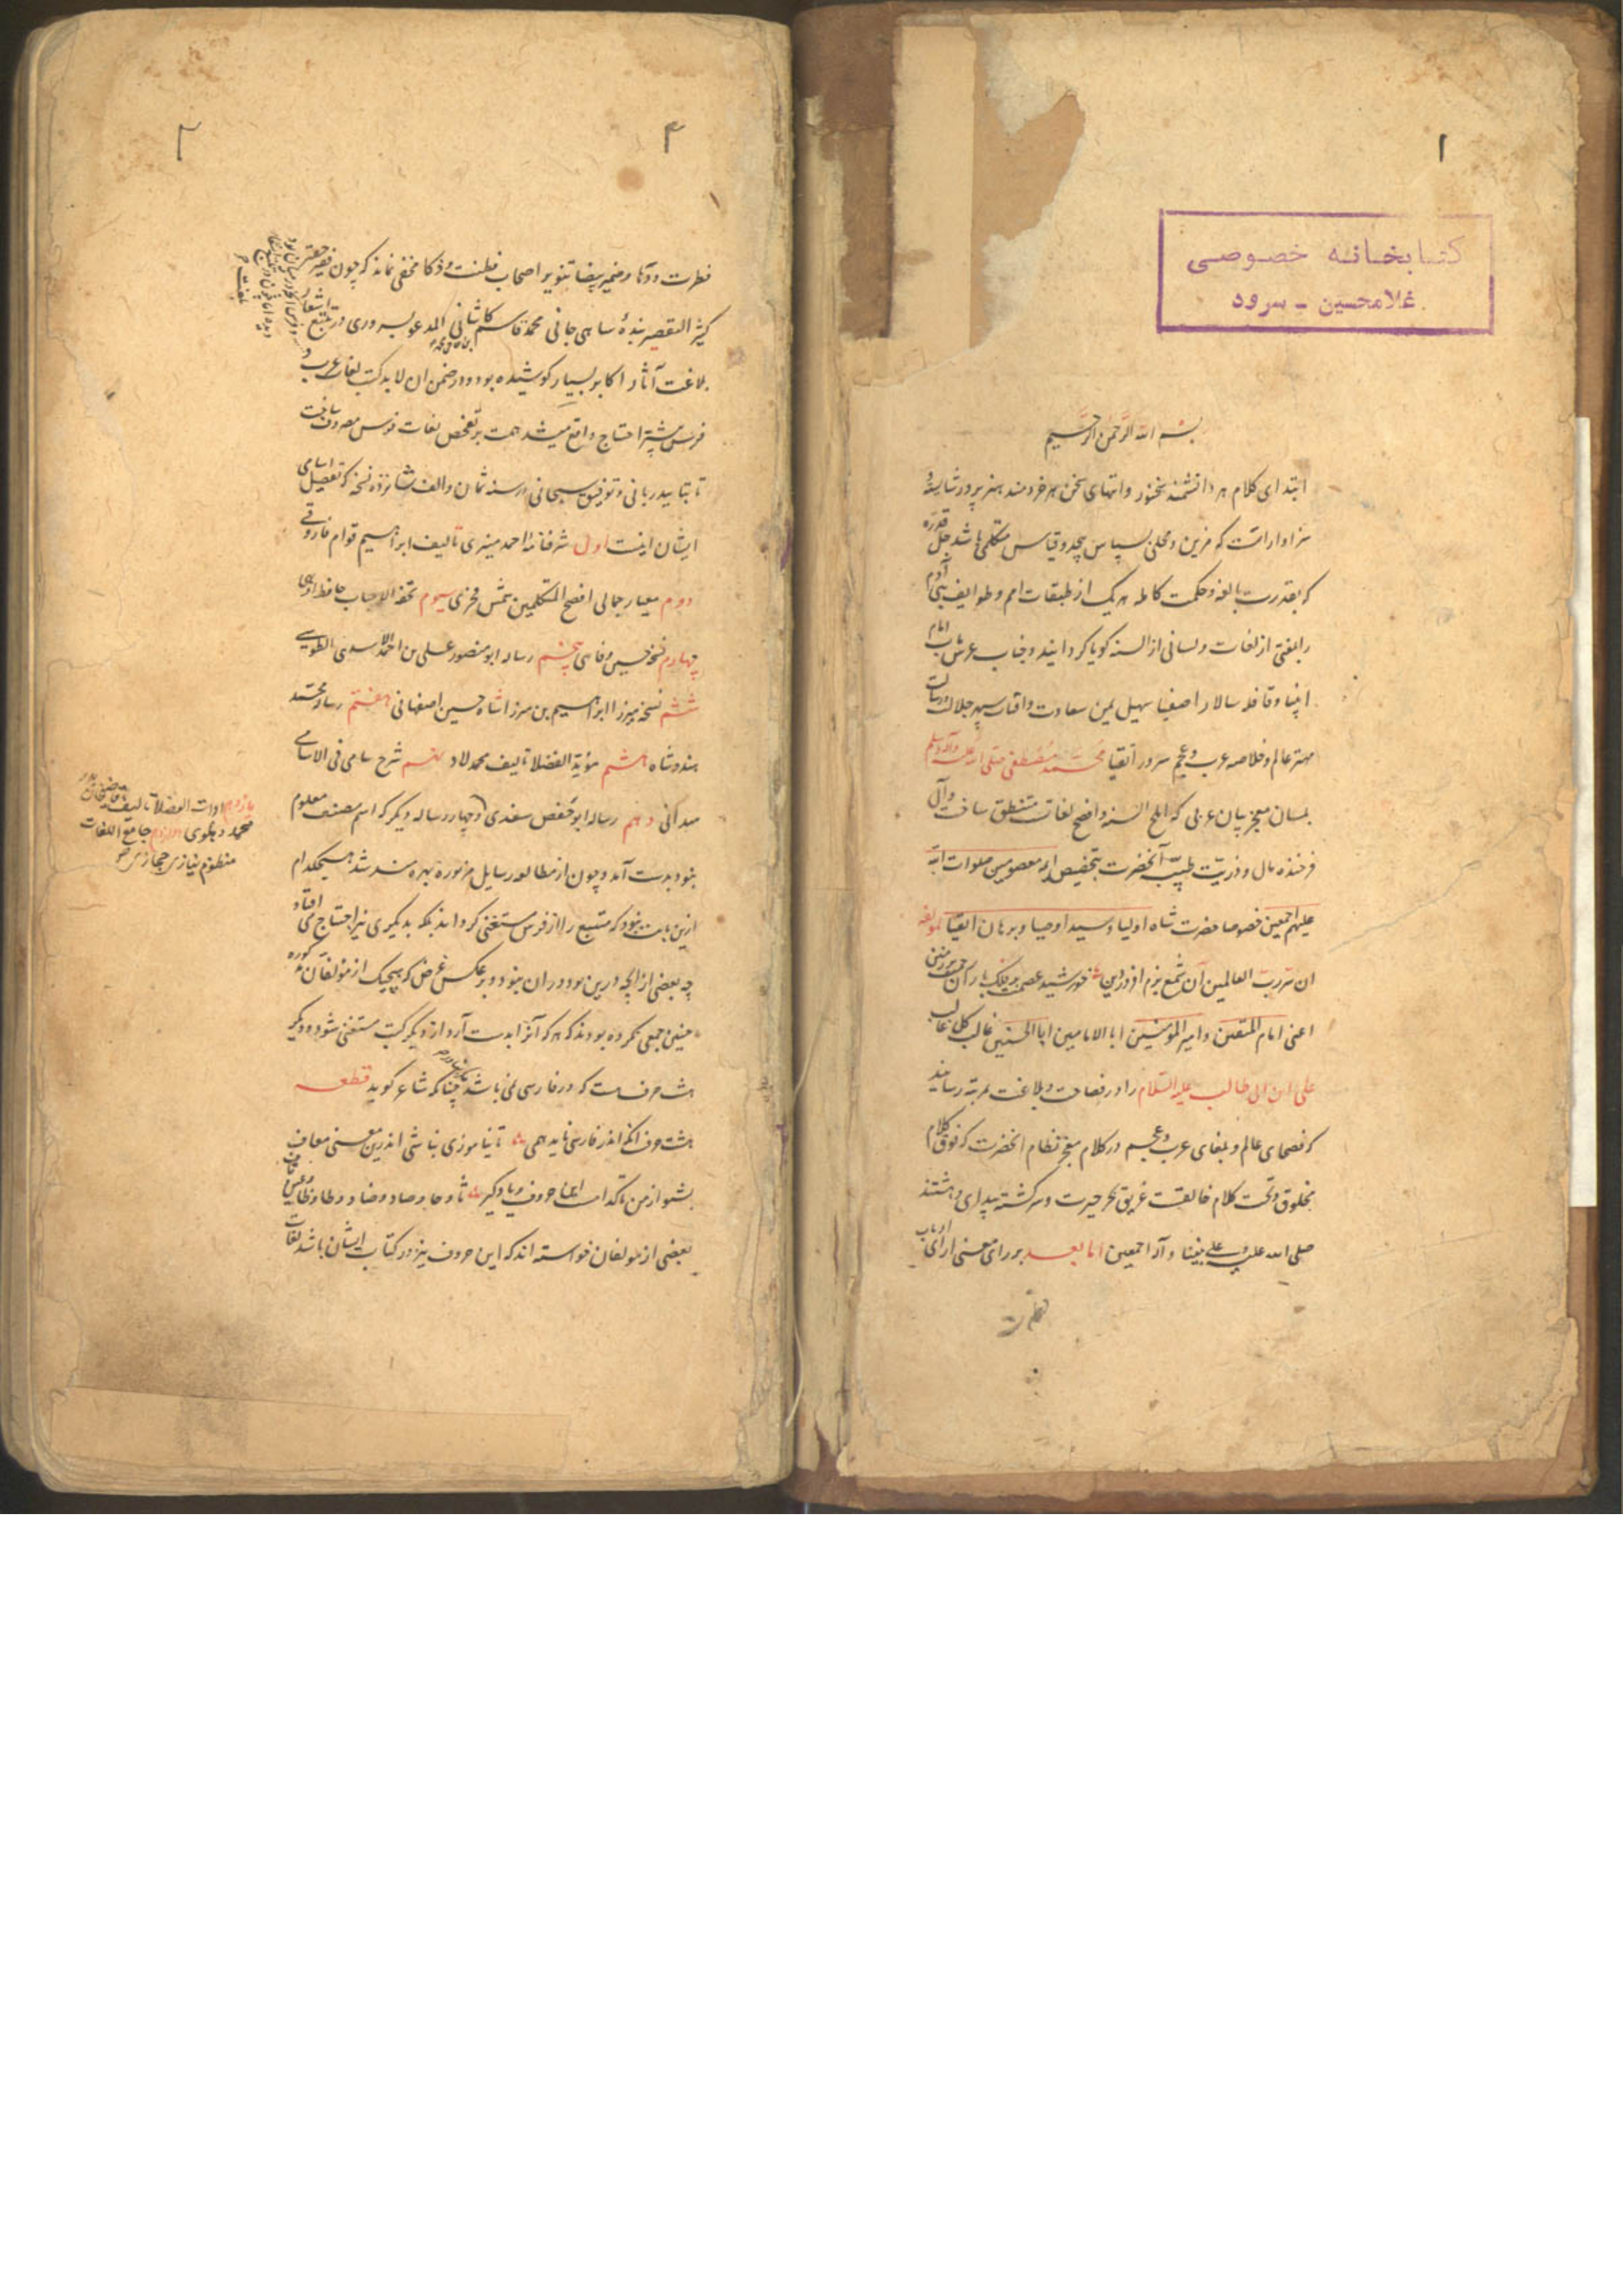 ۱
کتابخانه خصوصی
غلامحسین - سرود
بسم الله الرحمن الرحیم
ابتدای کلام هر دانشمند سخنور و انتهای سخن هر خردمند هنرپرور ثنای
سزاوار است که مزین و محلی بسپاس بیحد و قیاس متکلمی باشد جل قدره
که بقدرت بالغه و حکمت کامله هر یک از طبقات امم و طوایف بنی آدم
را بلغتی از لغات و لسانی از السنه گویا گردانیده و جناب عرش
انبیا و قافله سالار اصفیا سهیل یمن سعادت و آفتاب سپهر جلالت
مهتر عالم و خلاصه عرب و عجم سرور اتقیا محمد مصطفی صلی الله علیه و آله وسلم
بلسان معجز بیان عربی که املح السنه و افصح لغات منطق ساخت و آل
فرخنده مال و ذریت طیبه آنحضرت بتخصیص ائمه معصومین صلوات الله
علیهم اجمعین خصوصا حضرت شاه اولیا و سید اوصیا و برهان اتقیا لمولفه
ان سر رب العالمین آن شمع بزم افروز دین خورشید عصمت بر فلک
اعنی امام المتقین و امیر المومنین ابا الامامین ابا الحسنین غالب کل غالب
علی ابن ابی طالب علیه السلام را در فصاحت و بلاغت بمرتبه رسانید
که فصحای عالم و بلغای عرب و عجم در کلام معجز نظام آنحضرت که فوق کلام
مخلوق و تحت کلام خالقست غریق بحر حیرت و سرگشته بیدای دهشتند
صلی الله علیه و علی نبینا و آله اجمعین اما بعد بر رای معنی آرای ارباب
فطرت
۲
فطرت و دها و ضمیر بیضا تنویر اصحاب فطنت و ذکا مخفی نماند که چون فقیر حقیر
کثیر التقصیر بنده جانی محمد قاسم کاشانی المدعو بسروری در تتبع اشعار
بلاغت آثار اکابر بسیار کوشیده بود و در ضمن ان لابد کتب لغات عرب و
فرس بیشتر احتیاج واقع میشد همت بر تفحص لغات فرس مصروف ساخت
تا بتایید ربانی و توفیق سبحانی در سنه ثمان و الف شانزده نسخه که تفصیل اسامی
ایشان اینست اول شرفنامه احمد منیری تالیف ابراهیم قوام فاروقی
دوم معیار جمالی افصح المتکلمین شمس فخری سیوم تحفة الاحباب حافظ اوبهی
چهارم نسخه حسین وفایی پنجم رساله ابو منصور علی بن احمد الاسدی الطوسی
ششم نسخه میرزا ابراهیم بن میرزا شاه حسین اصفهانی هفتم رساله محمد
هندوشاه هشتم مؤید الفضلا تالیف محمد لاد نهم شرح سامی فی الاسامی
میدانی دهم رساله ابو حفص سغدی و چهار رساله دیگر که اسم مصنف معلوم
نبود بدست آمد و چون از مطالعه رسایل مزبوره بهره مند شد هیچکدام
ازین بابت نبود که متتبع را از فرس مستغنی گرداند بلکه بدیگری نیز احتیاج می افتاد
چه بعضی از آنچه درین بود در ان نبود و بر عکس غرض که هیچیک از مؤلفان
چنین جمعی نکرده بودند که هر که آنرا بدست آرد از دیگر کتب مستغنی شود و دیگر
هشت حرفست که در فارسی نمی باشد چنانکه شاعر گوید قطعه
هشت حرف انکه اندر فارسی ناید همی تا نیاموزی نباشی اندرین معنی معاف
بشنو از من تا کدامست این حروف و یاد گیر ثا و حا و صاد و ضاد و طا و ظا و عین و قاف
بعضی از مولفان خواسته اند که این حروف نیز در کتاب ایشان باشد لغات
یازدهم ادات الفضلا تالیف قاضیخان بدر
محمد دهلوی دوازدهم جامع اللغات
منظوم نیازی حجازی